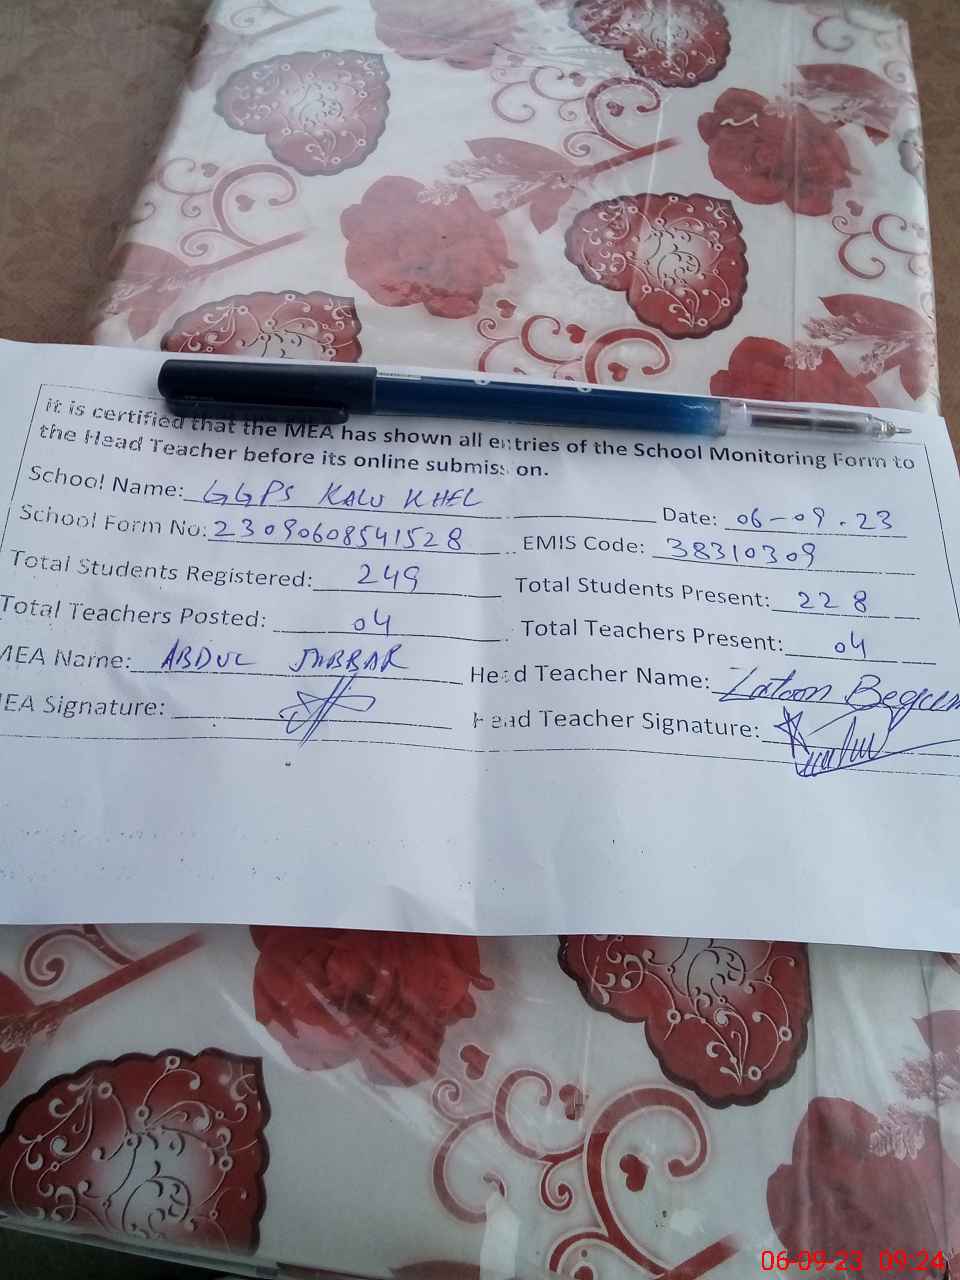 it is certified that the MEA has shown all entries of the School Monitoring Form to
the Head Teacher before its online submission.
School Name: GGPS KALU KHEL Date: 06-09.23
School Form No: 23090608541528 EMIS Code: 38310309
Total Students Registered: 249 Total Students Present: 228
Total Teachers Posted: 04 Total Teachers Present: 04
MEA Name: ABDUL JABBAR Head Teacher Name: Zatoon Begum
MEA Signature: Head Teacher Signature:
06-09-23 09:24